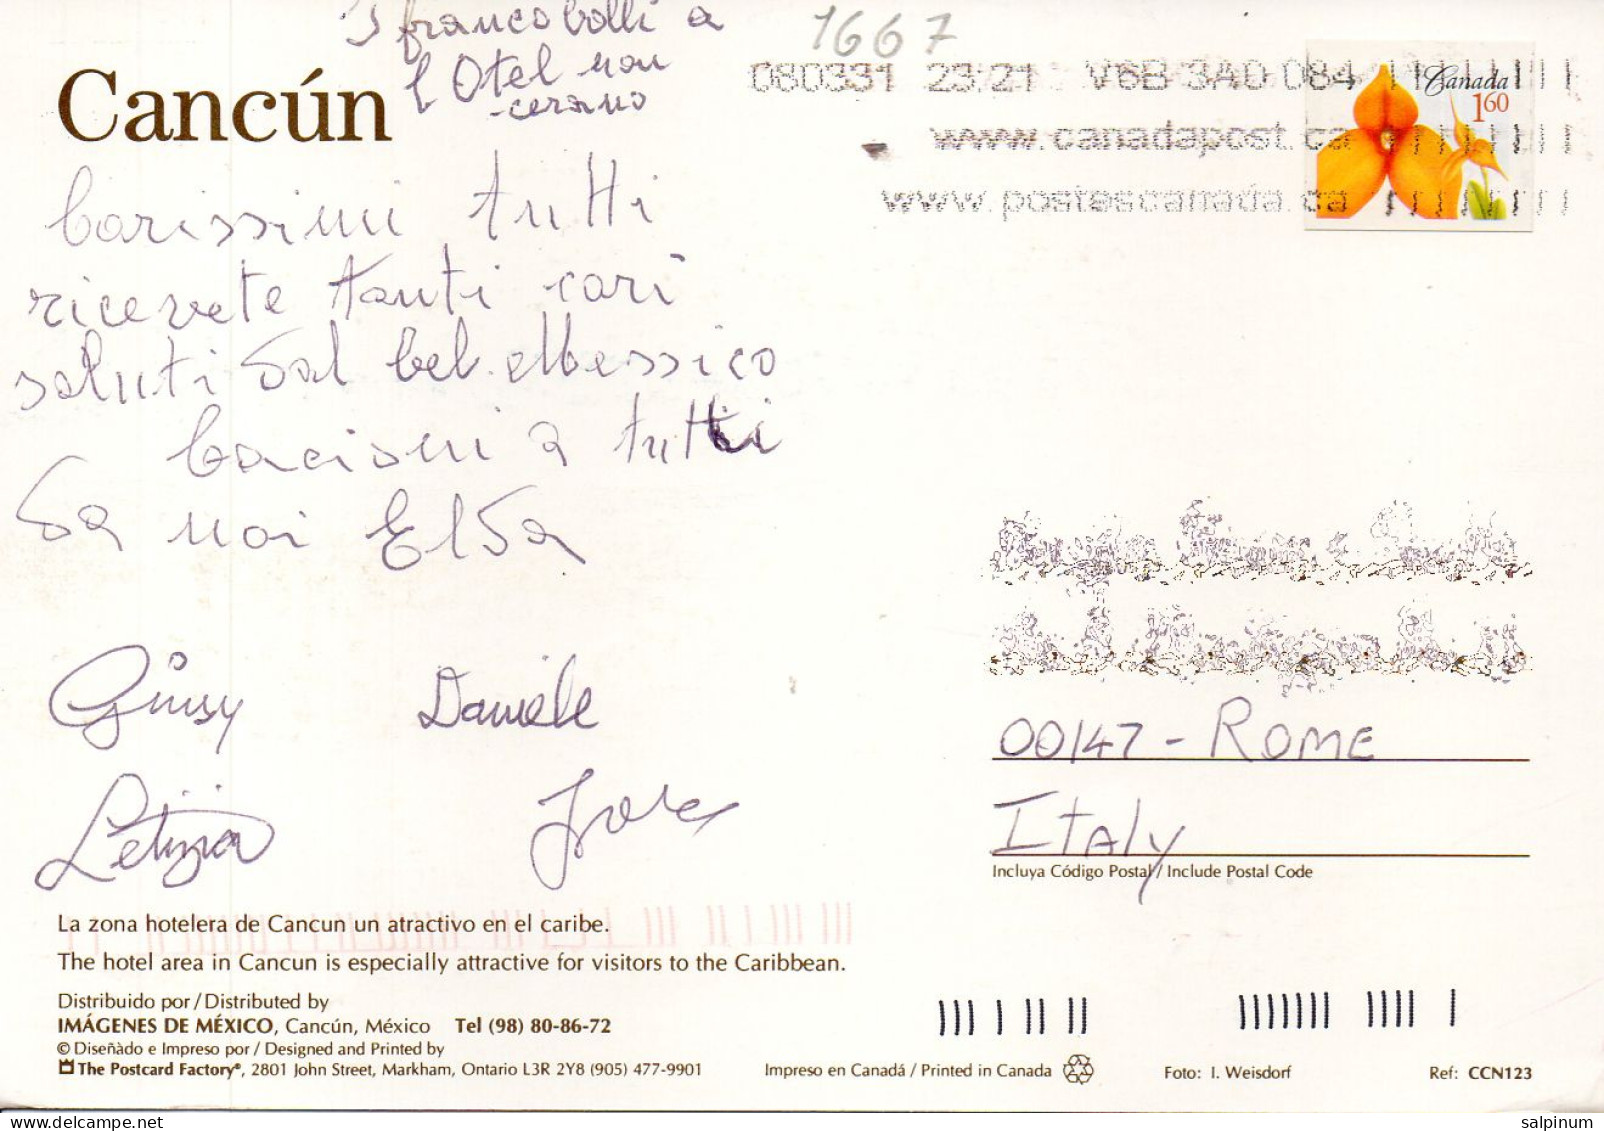 I francobolli a
l'Otel non
cerano
1667
080331 23:21 V6B 3A0 084
www.canadapost.ca
www.postescanada.ca
Canada
1⁶⁰
Cancún
Carissimi tutti
ricevete tanti cari
saluti dal bel Messico
bacioni a tutti
da noi Elda
Giusy Daniele
Letizia
00147 - ROME
ITALY
Incluya Código Postal / Include Postal Code
La zona hotelera de Cancun un atractivo en el caribe.
The hotel area in Cancun is especially attractive for visitors to the Caribbean.
Distribuido por / Distributed by
IMÁGENES DE MÉXICO, Cancún, México Tel (98) 80-86-72
© Diseñàdo e Impreso por / Designed and Printed by
The Postcard Factory®, 2801 John Street, Markham, Ontario L3R 2Y8 (905) 477-9901
Impreso en Canadá / Printed in Canada
Foto: I. Weisdorf
Ref: CCN123
salpinum